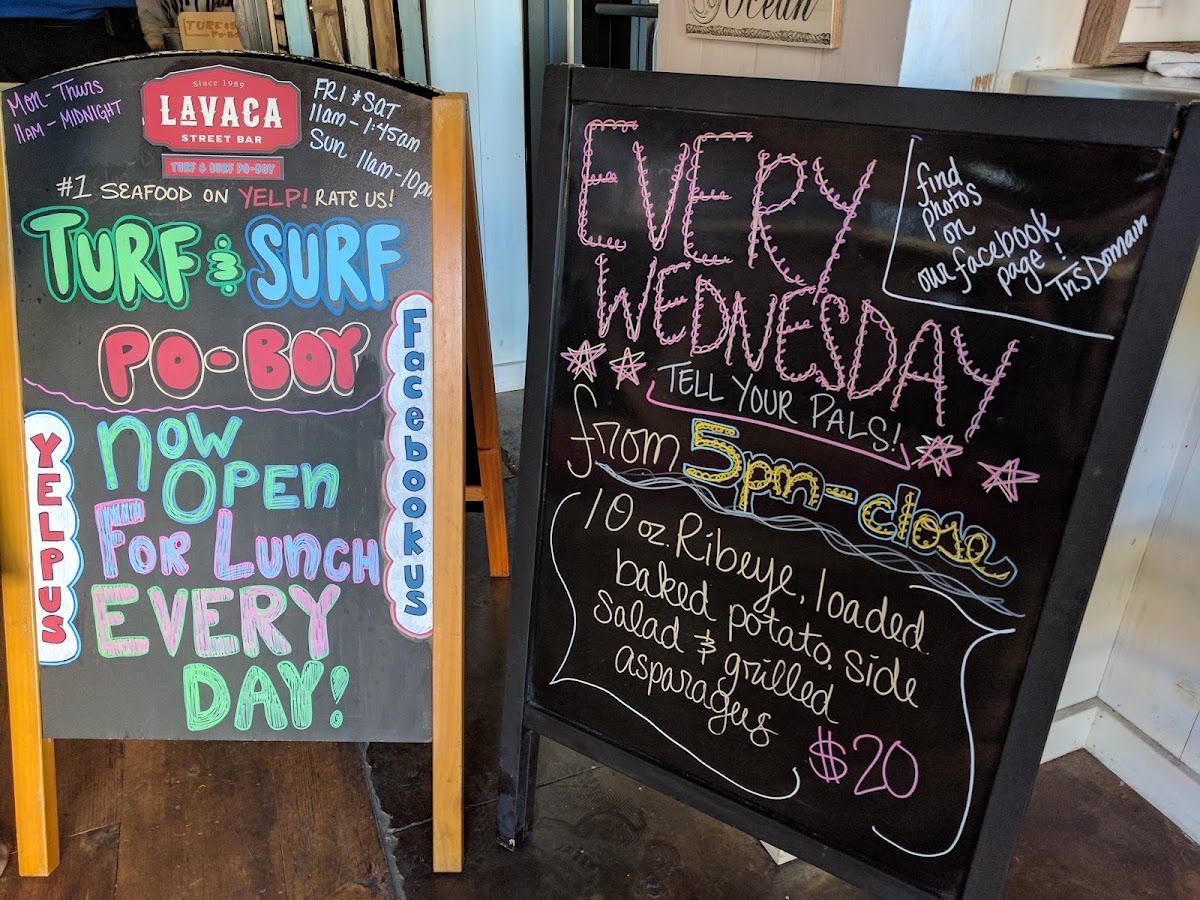 Ocean
TURF &
PO-BO
Mon-Thurs
11AM-MIDNIGHT
Since 1989
LAVACA
STREET BAR
TURF & SURF PO-BOY
FRI & SAT
11am-1:45am
Sun 11am-10pm
#1 SEAFOOD ON YELP! RATE US!
TURF & SURF
PO-BOY
YELP US
Facebook us
NOW
OPEN
FOR LUNCH
EVERY
DAY!
EVERY
WEDNESDAY
find
photos
on
our facebook
page!
TnSDomain
TELL YOUR PALS!
from 5pm-close
10 oz. Ribeye, loaded
baked potato, side
salad & grilled
asparagus
$20